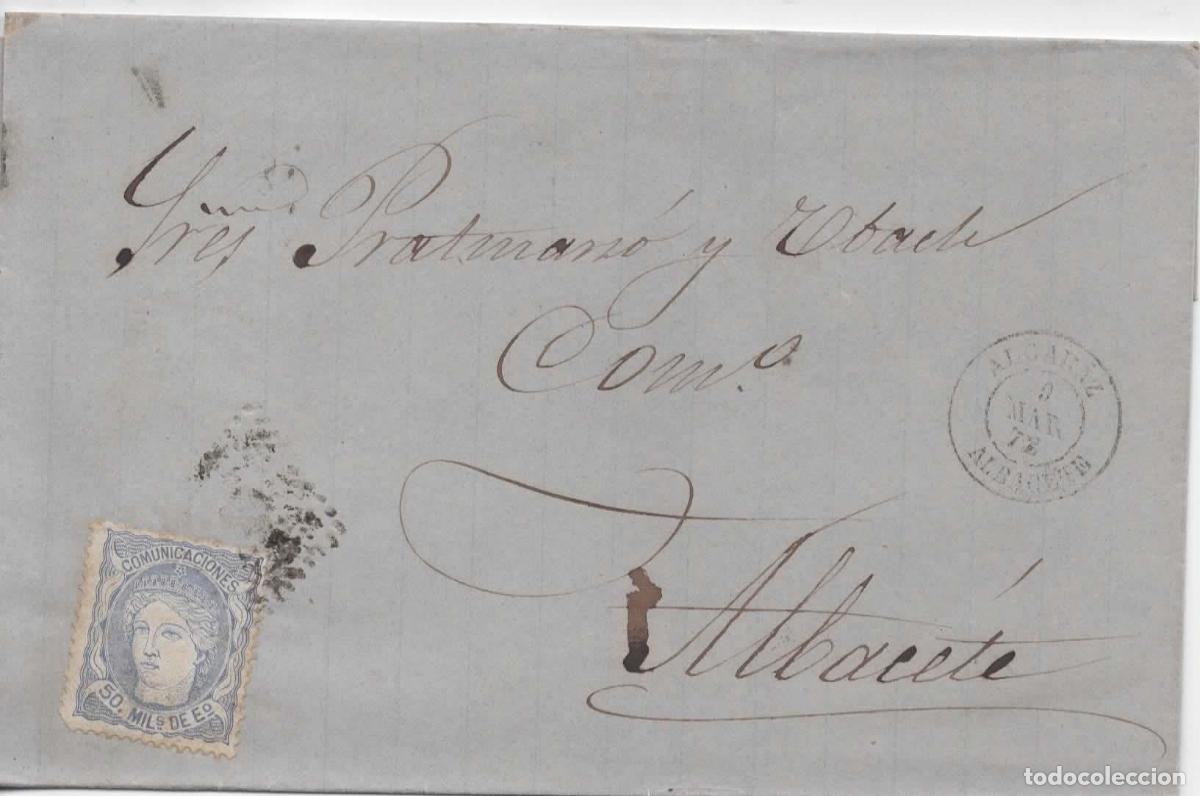 Sres Pratmarsó y Ubach
Com.o
Albacete
ALCARAZ
9
MAR
72
ALBACETE
COMUNICACIONES
50. MILS. DE EO.
todocoleccion